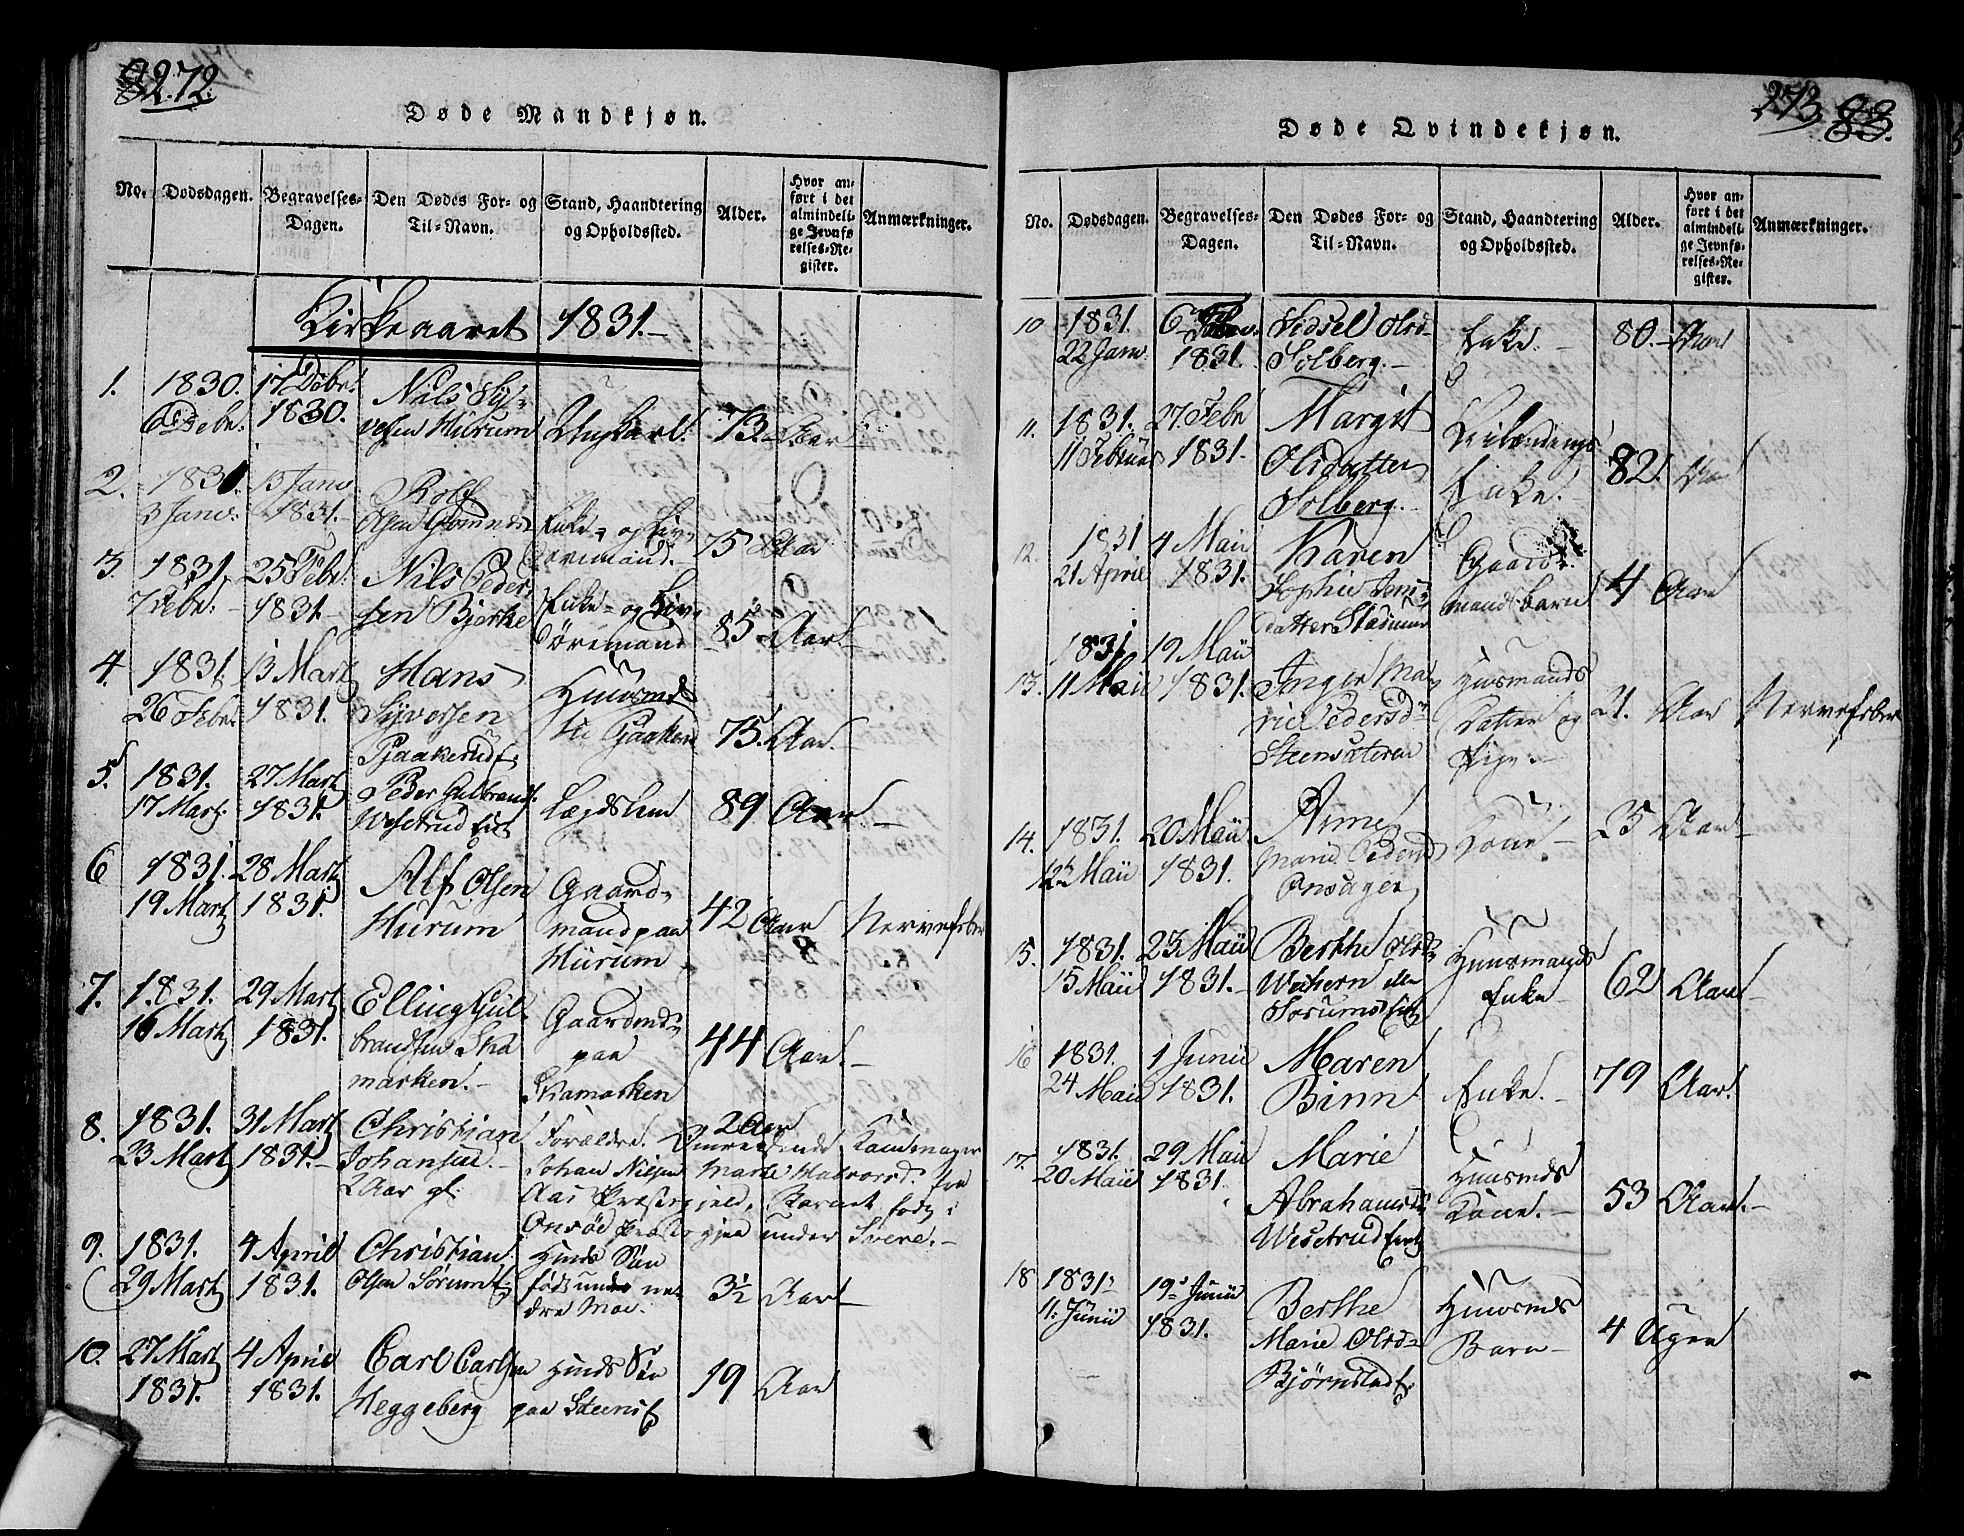 272.
Døde Mandkjøn.
No.
Dødsdagen.
Begravelses-
Dagen.
Den Dødes For- og
Til-Navn.
Stand, Haandtering
og Opholdssted.
Alder.
Hvor an-
ført i det
almindeli-
ge Jevnfø-
relses-Re-
gister.
Anmærkninger.
Kirkeaaret 1831.-
1.
1830.
6 Debr.
17 Debr.
1830.
Nils Sy-
versen Hurum
Ungkarl.
73. Aar
2.
1831.
3 Janv.
13 Janv
1831.-
Rolf
Olsen
Enke- og Liv-
øremand.
75 Aar
3.
1831.
7 Febr.
25 Febr.
1831.-
Nils Peder-
sen Bjerke
Enke- og Liv-
øremand
85 Aar.-
4.
1831.
26 Febr.
13 Martz
1831.
Hans
Syversen
75. Aar.-
5.
1831.
17 Martz
27 Martz
1831.
Peder Gulbrands.
Wesetrud Eie
Lægdslem
89 Aar.-
6
1831.
19 Martz
28 Martz
1831.
Alf Olsen
Hurum
Gaard-
mand paa
Hurum
42 Aar
Nervefeber
7.
1831.
16 Martz
29 Martz
1831.
Elling Gul-
brandsen Ska
marken.-
Gaardmd-
paa
Skamarken
44 Aar.-
8.
1831.
23 Martz
31 Martz
1831.-
Christian
Johansen.-
2 Aar gl.
Forældre.
2 Aar
Omreisende Kandemager
Johan Nilsen Marte Halvorsd. fra
Aas Præstegjeld, Barnet født i
Onsöe Præstegjeld under
9.
1831.
29 Martz
4 April
1831.
Christian
Olsen Sörum E.
Huusmds Søn
født under ne-
dre Moe.
3½ Aar
10.
27 Martz
1831.
4 April
1831.
Carl Carlsen
Heggeberg
Huusmds Søn
paa Steens E.
19 Aar
273 83.
Døde Qvindekjøn.
No.
Dødsdagen.
Begravelses-
Dagen.
Den Dødes For- og
Til-Navn.
Stand, Haandtering
og Opholdssted.
Alder.
Hvor an-
ført i det
almindeli-
ge Jevnfø-
relses-Re-
gister.
Anmærkninger.
10
1831.
22 Janv.
6 Febr.
1831.
Sidsel Olsd-
Solberg.-
Enke.-
80.- Aar
11.
1831.
11 Februar
27. Febr
1831.-
Margit
Olsdatter
Solberg.-
Enke.-
82. Aar
12.
1831
21 April
4 Maii
1831.
Karen
Sophie Jens-
datter
Gaard-
mands barn
4 Aar
13.
1831
11 Maii
19 Maii
1831.
Inger Ma-
rie Pedersd-
Steensæteren
Huusmands
Datter og
Pige.-
21. Aar
Nervefeber
14.
1831.
12 Maii
20 Maii
1831.
Anne
Marie Pedersd
Onsager
Kone.-
25 Aar-
15.
1831.
15 Maii
23 Maii
1831.-
Berthe Olsd-
Sörums Eie
Huusmands
Enke-
62 Aar-
16
1831.
24 Maii
1 Junii
1831.
Maren
Binn
Enke.-
79 Aar.
17.
1831.
20 Maii
29 Maii
1831.
Marie
Abrahamsd-
Wesetrud Eie
Huusmds
Kone.-
53 Aar.-
18
1831.
11. Junii
19. Junii
1831.
Berthe
Marie Olsd-
Bjørnstad E.
Huusmds
Barn-
4 Uger